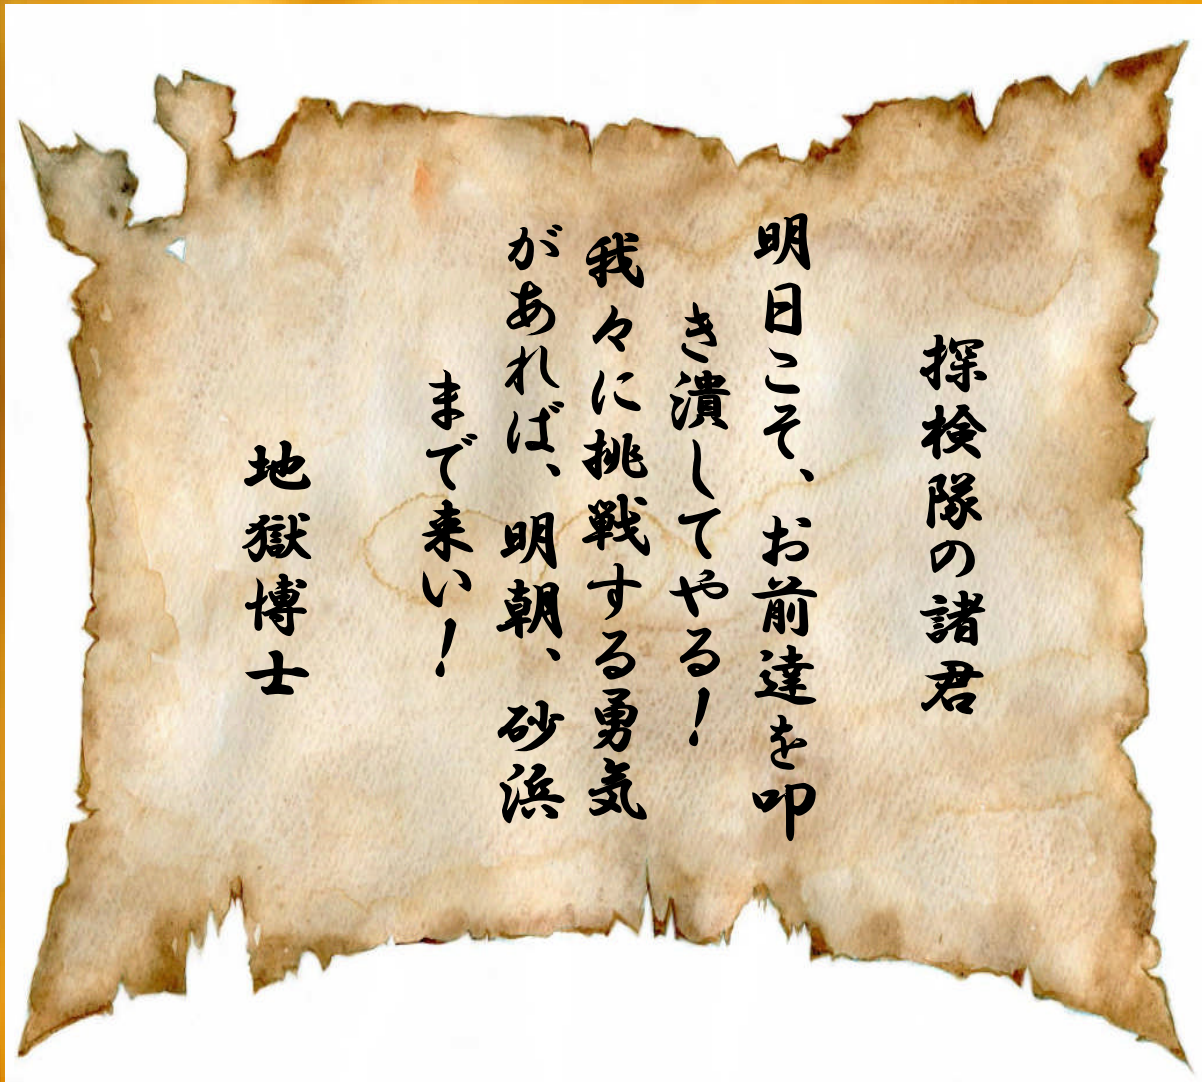 探検隊の諸君
明日こそ、お前達を叩
き潰してやる！
我々に挑戦する勇気
があれば、明朝、砂浜
まで来い！
地獄博士